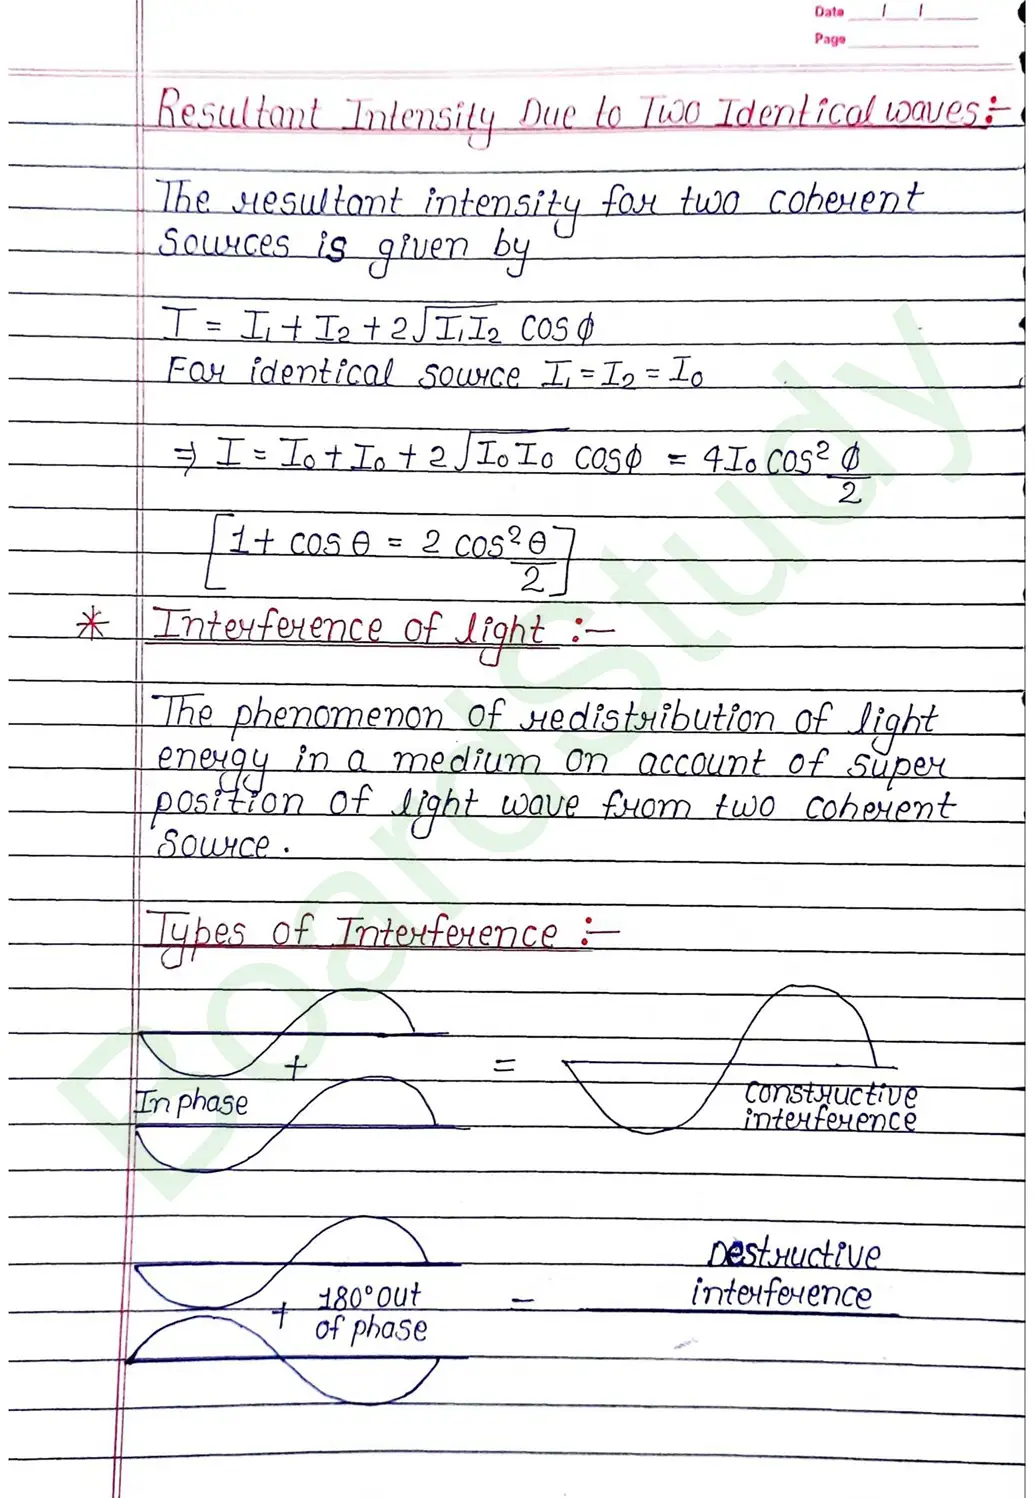 Date __/__/____
Page ________
Resultant Intensity Due to Two Identical waves:-
The resultant intensity for two coherent
sources is given by
I = I₁ + I₂ + 2√I₁I₂ cos ϕ
For identical source I₁ = I₂ = I₀
⇒ I = I₀ + I₀ + 2√I₀I₀ cosϕ = 4I₀ cos² ϕ/2
[1 + cos θ = 2 cos² θ/2]
* Interference of light :-
The phenomenon of redistribution of light
energy in a medium on account of super
position of light wave from two coherent
source.
Types of Interference :-
+ =
In phase
constructive
interference
Destructive
interference
+ 180° out
of phase
-
BoardStudy